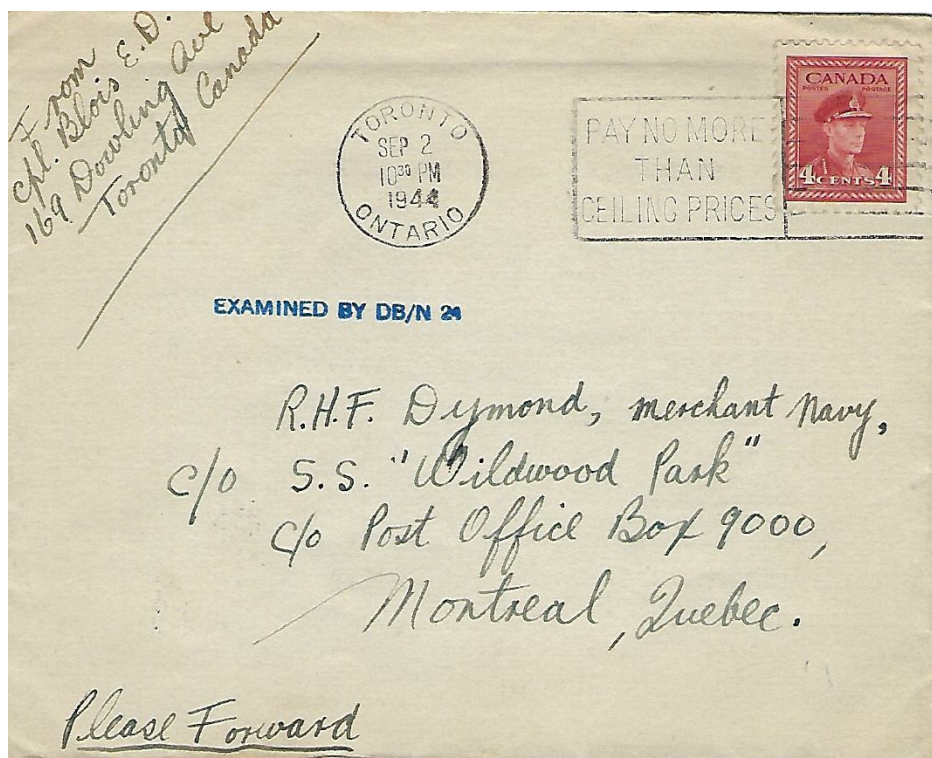 From
Cpl. Blois E.D.
169 Dowling Ave
Toronto Canada
TORONTO
SEP 2
10 30 PM
1944
ONTARIO
PAY NO MORE
THAN
CEILING PRICES
CANADA
POSTES POSTAGE
4 CENTS 4
EXAMINED BY DB/N 24
R.H.F. Dymond, merchant Navy,
c/o S.S. "Wildwood Park"
c/o Post Office Box 9000,
Montreal, Quebec.
Please Forward